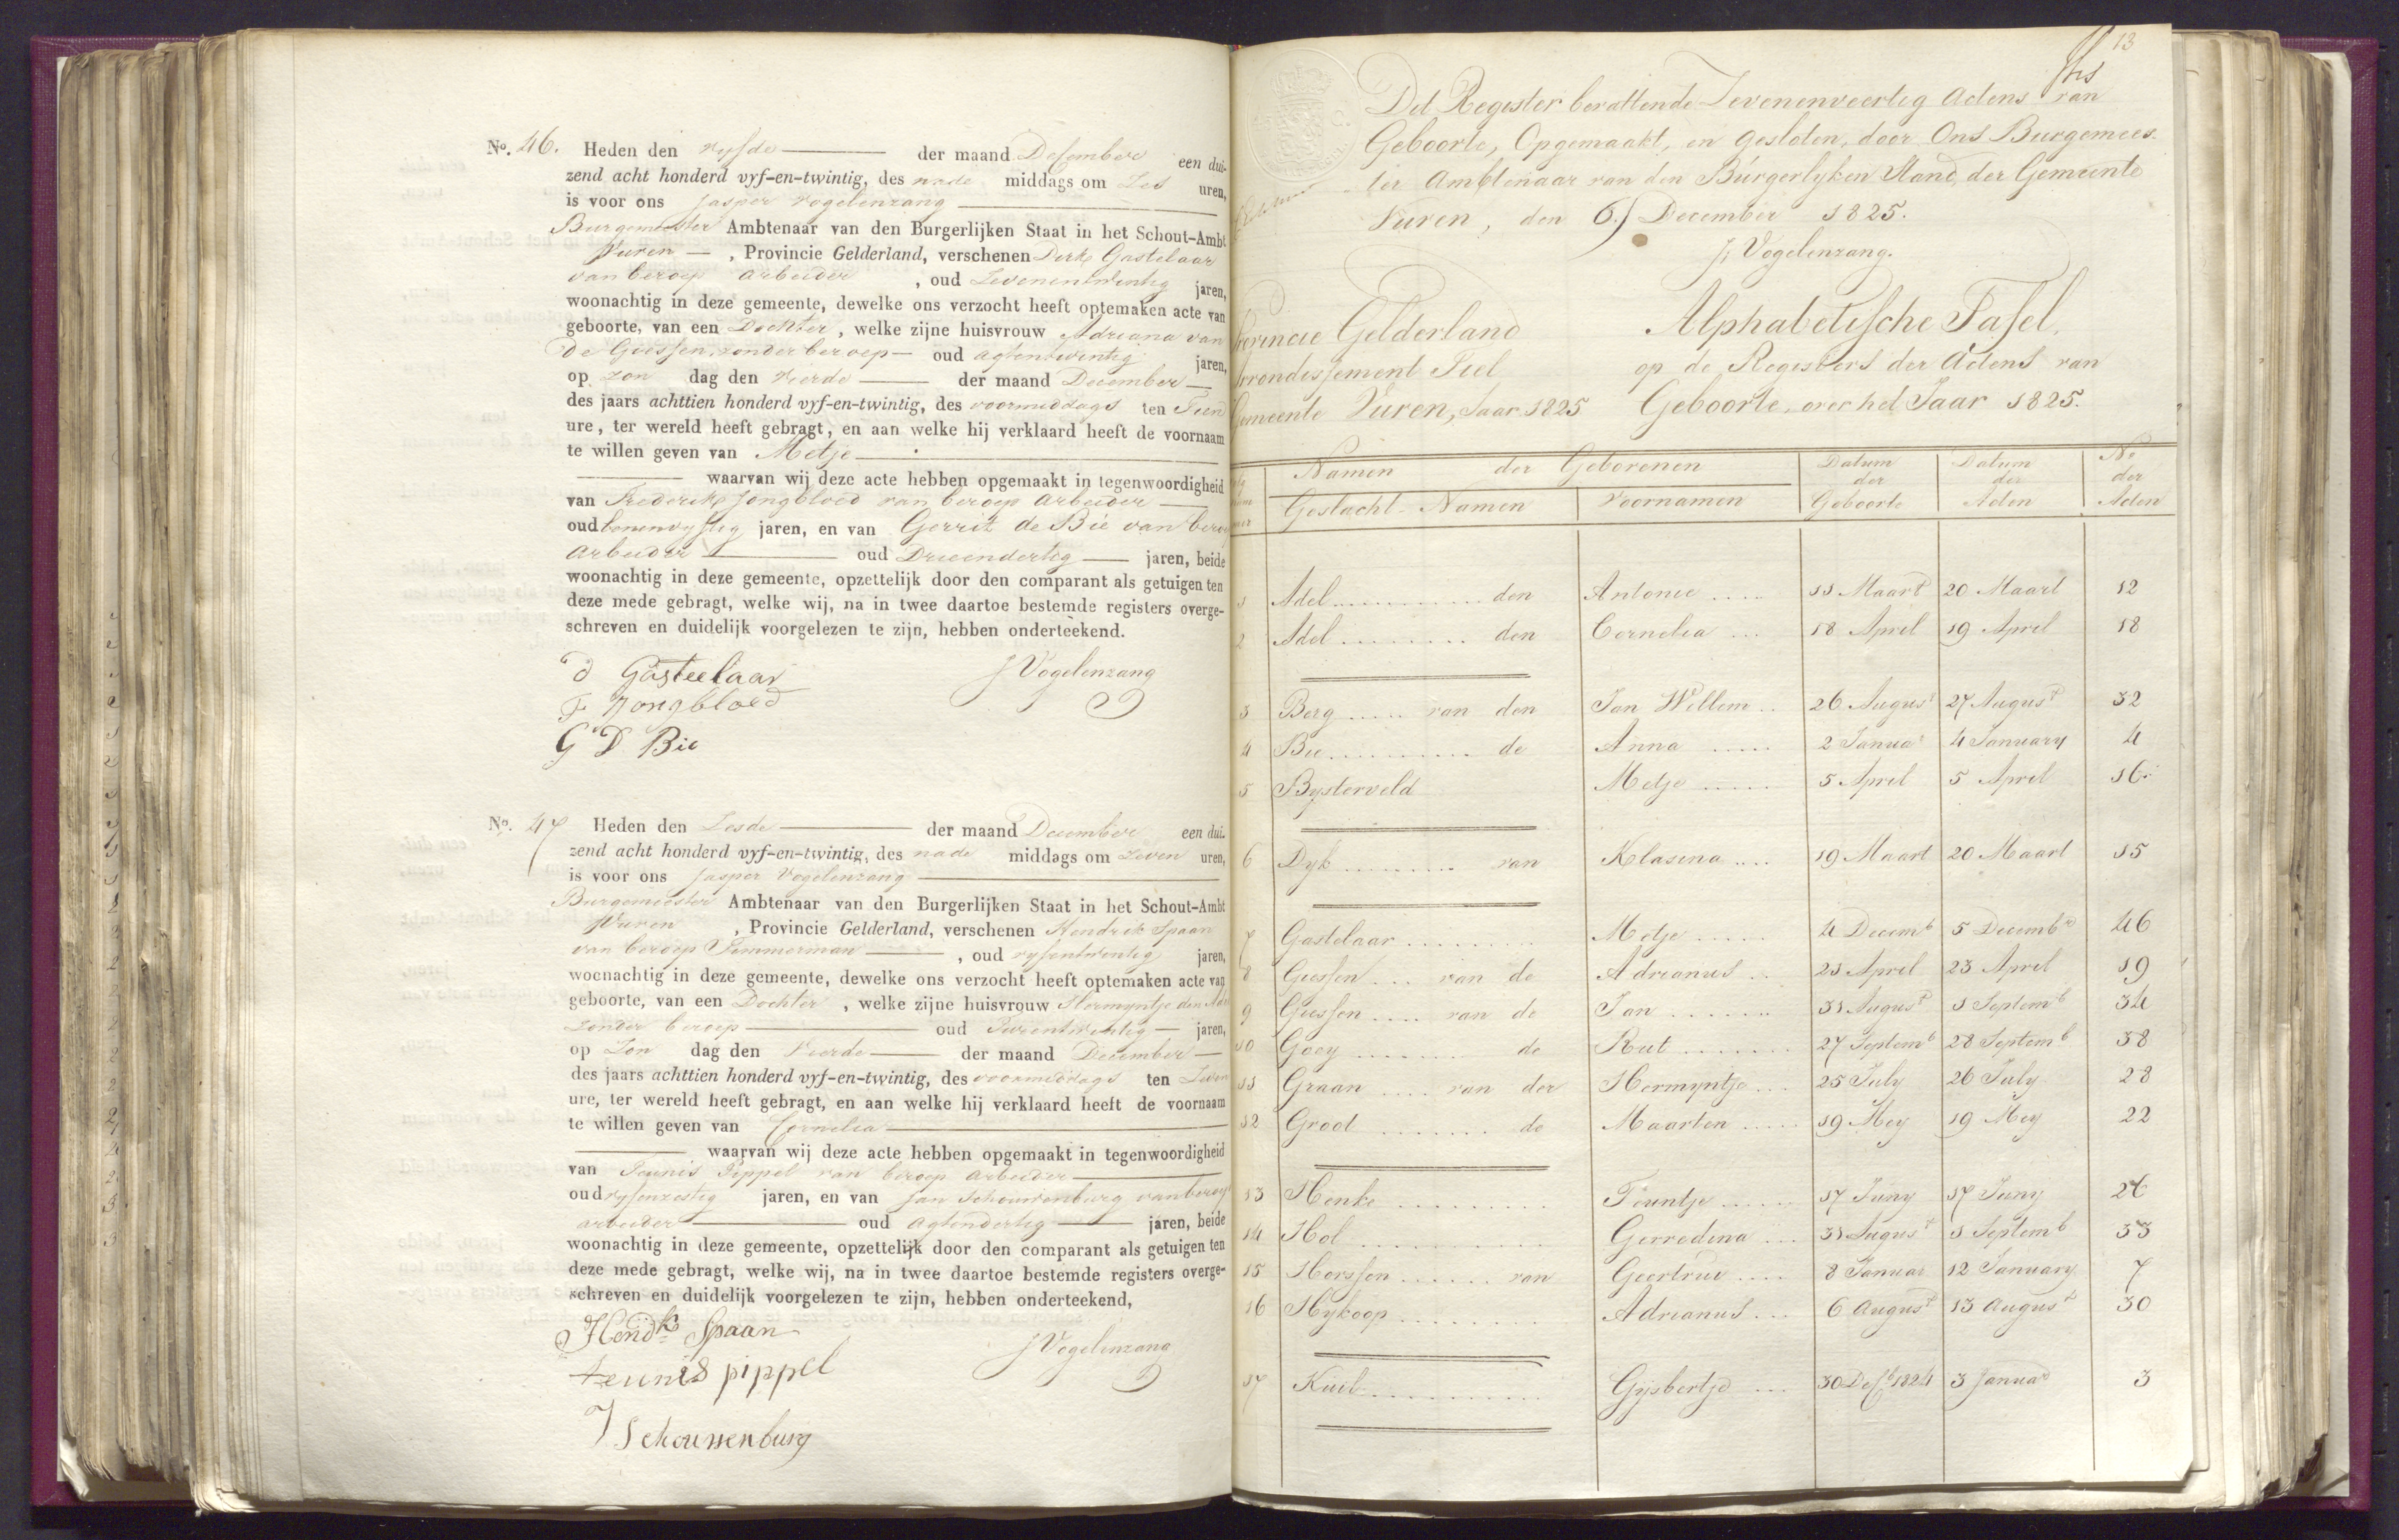 No. 46. Heden den vyfde der maand December een dui-
zend acht honderd vyf-en-twintig, des nade middags om Zes uren,
is voor ons Jasper Vogelenzang
Burgemeester Ambtenaar van den Burgerlijken Staat in het Schout-Ambt
Vuren , Provincie Gelderland, verschenen Derk Gastelaar
van beroep arbeider , oud Zevenentwentig jaren,
woonachtig in deze gemeente, dewelke ons verzocht heeft optemaken acte van
geboorte, van een Dochter , welke zijne huisvrouw Adriana van
de Giessen, zonder beroep oud agtentwentig jaren,
op zon dag den vierde der maand December
des jaars achttien honderd vyf-en-twintig, des voormiddags ten Tien
ure, ter wereld heeft gebragt, en aan welke hij verklaard heeft de voornaam
te willen geven van Metje
waarvan wij deze acte hebben opgemaakt in tegenwoordigheid
van Frederik Jongbloed van beroep arbeider
oud jaren, en van Gerrit de Bie van beroep
arbeider oud Drieendertig jaren, beide
woonachtig in deze gemeente, opzettelijk door den comparant als getuigen ten
deze mede gebragt, welke wij, na in twee daartoe bestemde registers overge-
schreven en duidelijk voorgelezen te zijn, hebben onderteekend.
D Gasteelaar J Vogelenzang
F Jongbloed
G D Bie
No. 47 Heden den Zesde der maand December een dui-
zend acht honderd vyf-en-twintig, des nade middags om Zeven uren,
is voor ons Jasper Vogelenzang
Burgemeester Ambtenaar van den Burgerlijken Staat in het Schout-Ambt
Vuren , Provincie Gelderland, verschenen Hendrik Spaan
van beroep Timmerman , oud vyfentwentig jaren,
woonachtig in deze gemeente, dewelke ons verzocht heeft optemaken acte van
geboorte, van een Dochter , welke zijne huisvrouw Hermyntje den Adel
zonder beroep oud Tweentwentig jaren,
op Zon dag den Vierde der maand December
des jaars achttien honderd vyf-en-twintig, des voormiddags ten Zeven
ure, ter wereld heeft gebragt, en aan welke hij verklaard heeft de voornaam
te willen geven van Cornelia
waarvan wij deze acte hebben opgemaakt in tegenwoordigheid
van Teunis Pippel van beroep arbeider
oud vyfenzestig jaren, en van Jan Schouwenburg van beroep
arbeider oud agtendertig jaren, beide
woonachtig in deze gemeente, opzettelijk door den comparant als getuigen ten
deze mede gebragt, welke wij, na in twee daartoe bestemde registers overge-
schreven en duidelijk voorgelezen te zijn, hebben onderteekend,
Hendk Spaan J Vogelenzang
teunis pippel
J Schouwenburg
13
Dit Register bevattende Zevenenveertig Actens van
Geboorte, Opgemaakt, en gesloten, door Ons Burgemees-
ter Ambtenaar van den Burgerlyken Stand, der Gemeente
Vuren, den 6 December 1825.
J. Vogelenzang.
Provincie Gelderland Alphabetische Tafel,
Arrondissement Tiel op de Registers der Actens van
Gemeente Vuren, Jaar 1825 Geboorte over het Jaar 1825.
Namen der Geborenen Datum der Geboorte Datum der Acten No der Acten
Geslacht-Namen Voornamen
1 Adel den Antonie 11 Maart 20 Maart 12
2 Adel den Cornelia 18 April 19 April 18
3 Berg van den Jan Willem 26 August 27 August 32
4 Bie de Anna 2 Januar 4 January 4
5 Bysterveld Metje 5 April 5 April 16
6 Dyk van Klasina 19 Maart 20 Maart 15
7 Gastelaar Metje 4 Decemb 5 Decembr 46
8 Giessen van de Adrianus 21 April 23 April 19
9 Giessen van de Jan 31 August 1 Septemb 34
10 Gooy de Rut 27 Septemb 28 Septemb 38
11 Graan van der Hermyntje 25 July 26 July 28
12 Groot de Maarten 19 Mey 19 Mey 22
13 Henke Teuntje 17 Juny 17 Juny 26
14 Hol Gerredina 31 August 1 Septemb 33
15 Horssen van Geertrui 8 Januar 12 January 7
16 Hykoop Adrianus 6 August 13 August 30
17 Kuil Gijsbertje 30 Decb 1824 3 Januar 3